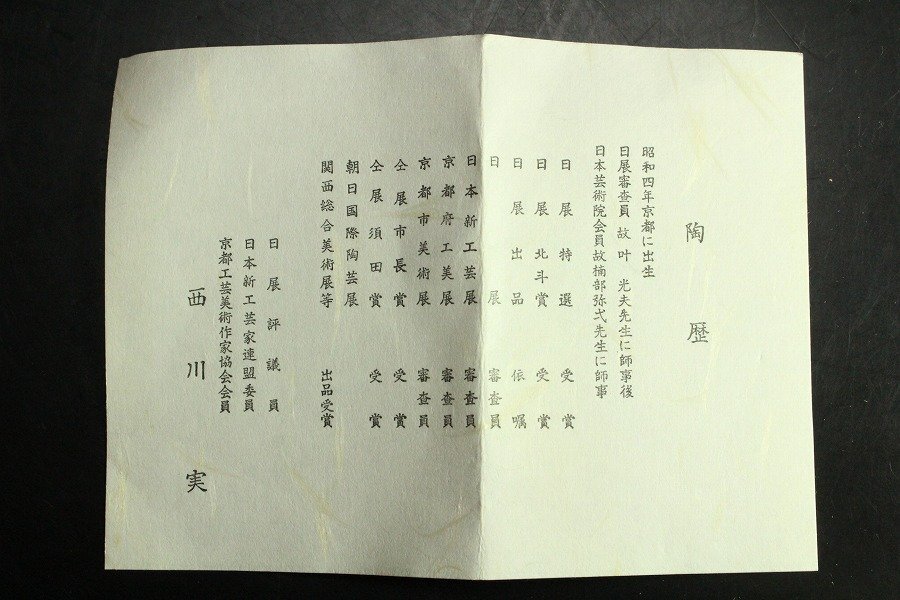 陶歴
昭和四年京都に出生
日展審査員故叶光夫先生に師事後
日本芸術院会員故楠部弥弌先生に師事
日展特選受賞
日展北斗賞受賞
日展出品依嘱
日展審査員
日本新工芸展審査員
京都府工美展審査員
京都市美術展審査員
仝展市長賞受賞
仝展須田賞受賞
朝日国際陶芸展
関西総合美術展等出品受賞
日展評議員
日本新工芸家連盟委員
京都工芸美術作家協会会員
西川実